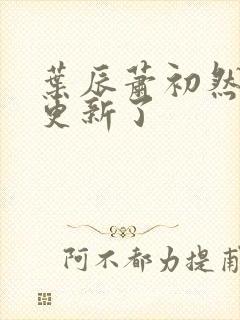 葉辰蕭初然
更新了
阿不都力提甫